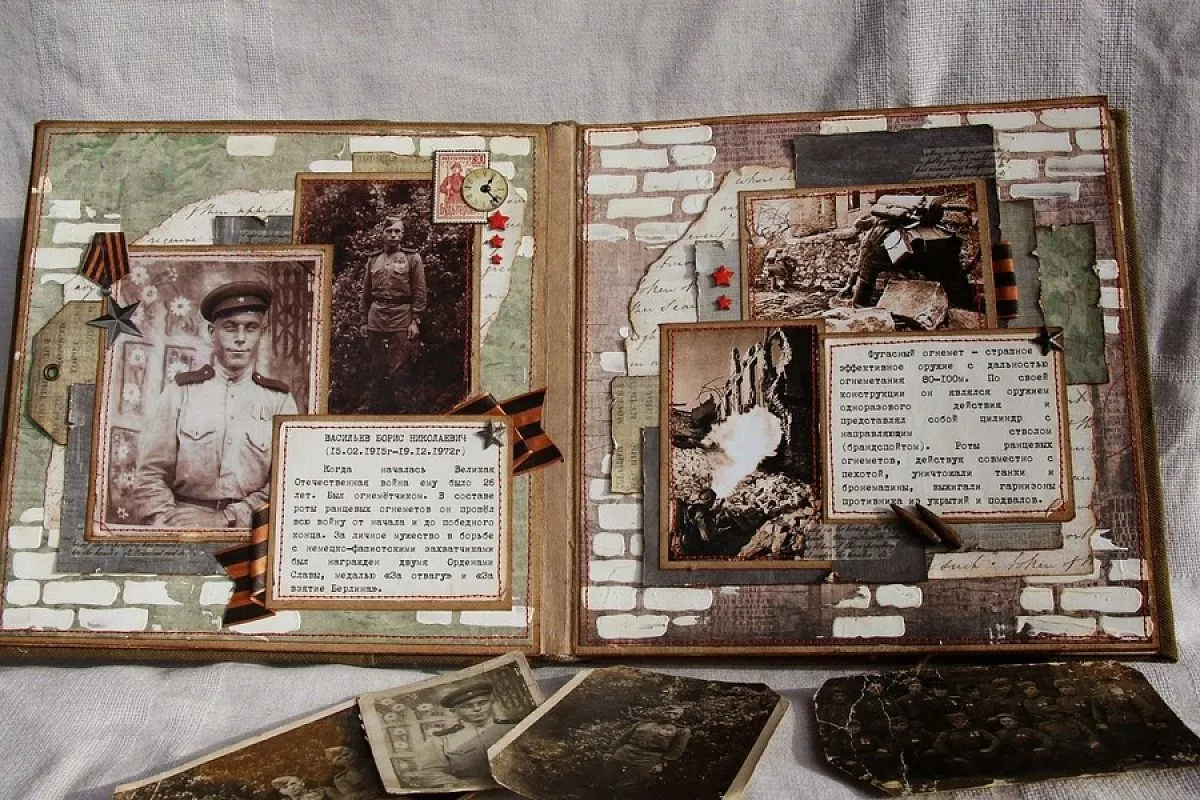 30
ВАСИЛЬЕВ БОРИС НИКОЛАЕВИЧ
(15.02.1915г-19.12.1972г)
Когда началась Великая
Отечественная война ему было 26
лет. Был огнемётчиком. В составе
роты ранцевых огнеметов он прошёл
всю войну от начала и до победного
конца. За личное мужество в борьбе
с немецко-фашистскими захватчиками
был награжден двумя Орденами
Славы, медалью «За отвагу» и «За
взятие Берлина».
Фугасный огнемет - страшное
эффективное оружие с дальностью
огнеметания 80-100м. По своей
конструкции он являлся оружием
одноразового действия и
представлял собой цилиндр с
направляющим стволом
(брандспойтом). Роты ранцевых
огнеметов, действуя совместно с
пехотой, уничтожали танки и
бронемашины, выжигали гарнизоны
противника из укрытий и подвалов.